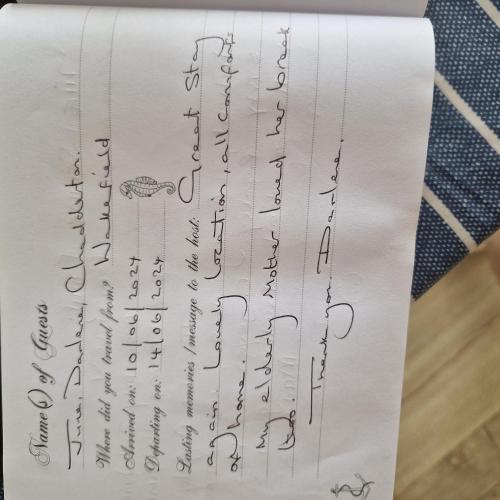 Name(s) of Guests
June, Darlene, Chadderton.
Where did you travel from? Wakefield
Arrived on: 10/06/2024
Departing on: 14/06/2024
Lasting memories / message to the host: Great Stay
again. Lovely location, all comforts
of home.
My elderly Mother loved her break
too.
Thank you. Darlene.